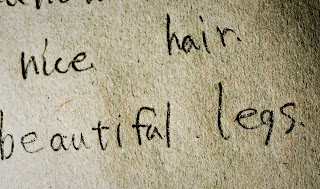 nice hair.
beautiful legs.